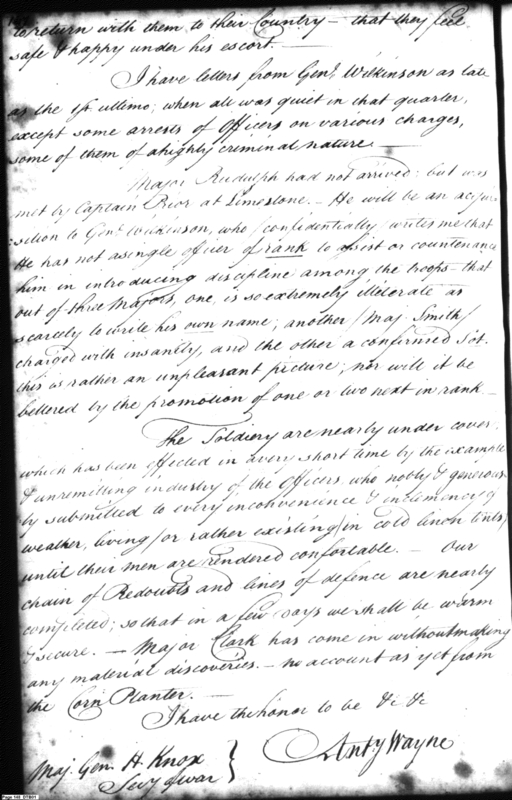 to return with them to their Country — that they feel
safe & happy under his escort. —
I have letters from Genl. Wilkinson as late
as the 1st. ultimo; when all was quiet in that quarter,
except some arrests of Officers on various charges,
some of them of a highly criminal nature. —
Major Rudulph had not arrived; but was
met by Captain Prior at Limestone. — He will be an acqui
sition to Genl. Wilkinson, who (confidentially) writes me that
He has not a single officer of rank to assist or countenance
him in introducing discipline among the troops — that
out of three Majors, one is so extremely illiterate as
scarcely to write his own name; another (Maj. Smith)
charged with insanity, and the other a confirmed Sot.
this is rather an unpleasant picture; nor will it be
bettered by the promotion of one or two next in rank —
The Soldiery are nearly under cover.
which has been effected in a very short time by the example
& unremitting industry of the Officers, who nobly & generous-
ly submitted to every inconvenience & inclemency of
weather, living (or rather existing) in cold linon tents,
until their men are rendered confortable. — Our
chain of Redoubts and lines of defence are nearly
completed; so that in a few days we shall be warm
& secure. — Major Clark has come in without making
any material discoveries. — no account as yet from
the Corn Planter. —
I have the honor to be &c &c
Anty Wayne
Maj. Gen. H. Knox
Secy of war
Page 148 D1B01